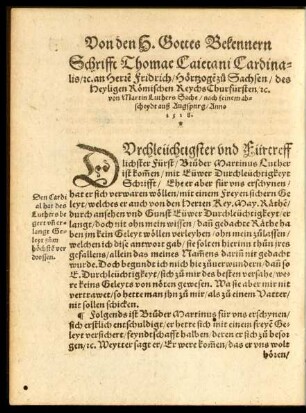 Von den H. Gottes Bekennern
Schrifft Thomae Caietani Cardina-
lis/ ꝛc. an Herrē Fridrich/ Hörtzogē zů Sachsen/ des
Heyligen Römischen Reychs Churfürsten/ ꝛc.
von Martin Luthers Sache/ nach seinem ab-
scheydt auß Augspurg/ Anno
1518.
*
DVrchleüchtigster vnd Fürtreff
lichster Fürst/ Brůder Martinus Luther
ist kom̄en/ mit Euwer Durchleüchtigkeyt
Schrifft/ Ehe er aber für vns erschynen/
hat er sich verwaren wöllen/ mit einem Freyen sichern Ge
leyt/ welches er auch von den Herren Key. May. Räthē/
durch ansehen vnd Gunst Euwer Durchleüchtigkeyt/ er-
langet/ doch nit ohn mein wissen/ dañ gedachte Räthe ha
ben jm kein Geleyt wöllen verleyhen/ ohn mein zůlassen/
welchen ich dise antwort gab/ sie solten hierinn thůn jres
gefallens/ allein das meines Nam̄ens darinn nit gedacht
wurde. Doch begundt ich mich hie zůuerwundern/ dañ so
E. Durchleüchtigkeyt/ sich zů mir des besten versahe/ we-
re keins Geleyts von nöten gewesen. Wa sie aber mir nit
vertrawet/ so hette man jhn zů mir/ als zů einem Vatter/
nit sollen schicken.
¶ Folgends ist Brůder Martinus für vns erschynen/
sich erstlich entschuldiget/ er hette sich mit einem freyē Ge
leyt versichert/ feyndtschafft halben/ deren er sich zů besor-
gen/ ꝛc. Weytter sagt er/ Er were kom̄en/ das er vns wolt
hören/
Den Cardi
al hat des
Luthers be
gert vñ er-
langt Ge-
leyt zům
höchstē ver
drossen.